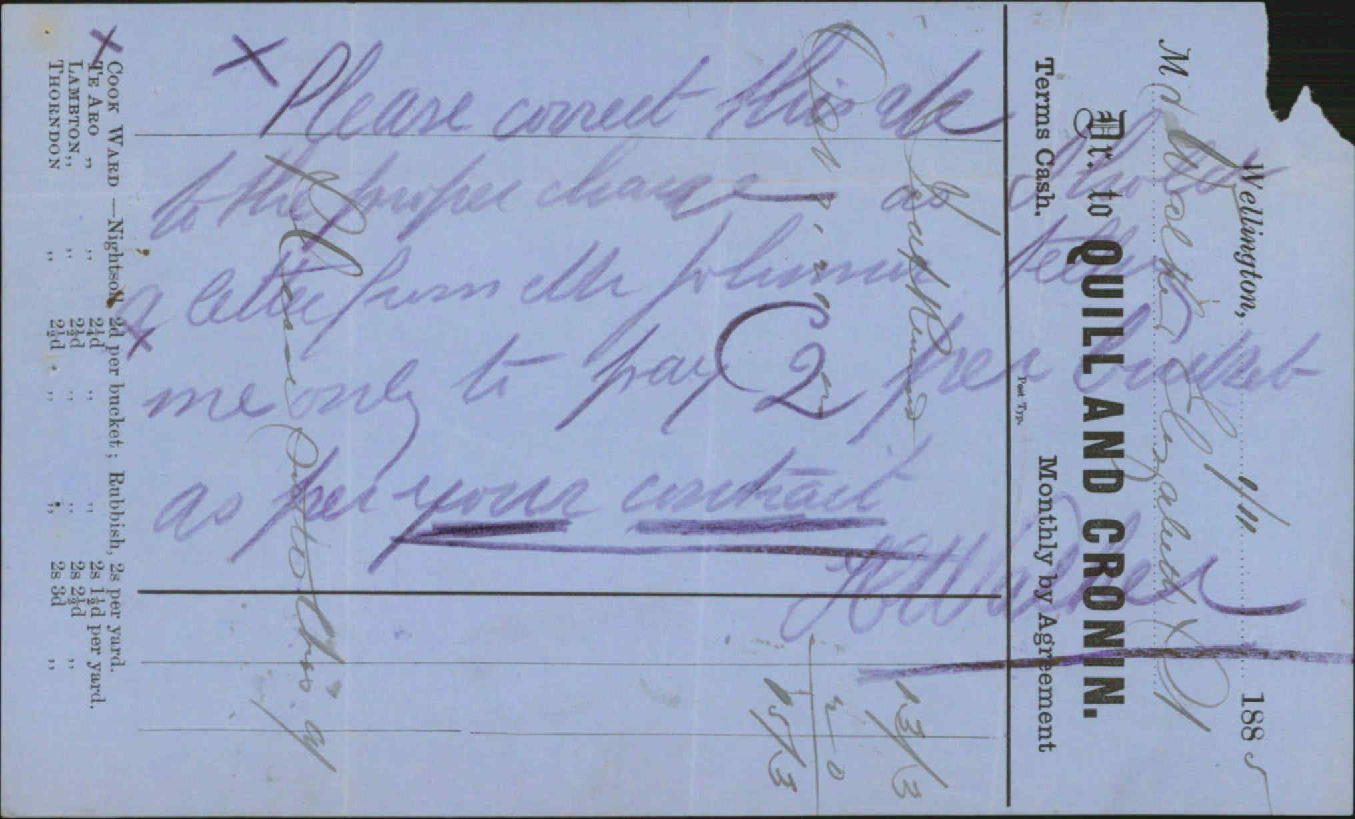 Wellington, 1/11 1885
M
Dr. to QUILL AND CRONIN.
Terms Cash. Monthly by Agreement
Post Typ.
13/3
2-0
15/3
Please
COOK WARD —Nightsoil, 2d per bucket; Rubbish, 2s per yard.
X TE ARO „ „ 2¼d „ „ 2s 1½d per yard.
LAMBTON„ „ 2½d „ „ 2s 2½d „
THORNDON „ 2½d „ „ 2s 3d „
X Please correct this a/c
to the proper charge — as I hold
a letter from Mr Johnson telling
me only to pay (2 per bucket
as per your contract
H Walker